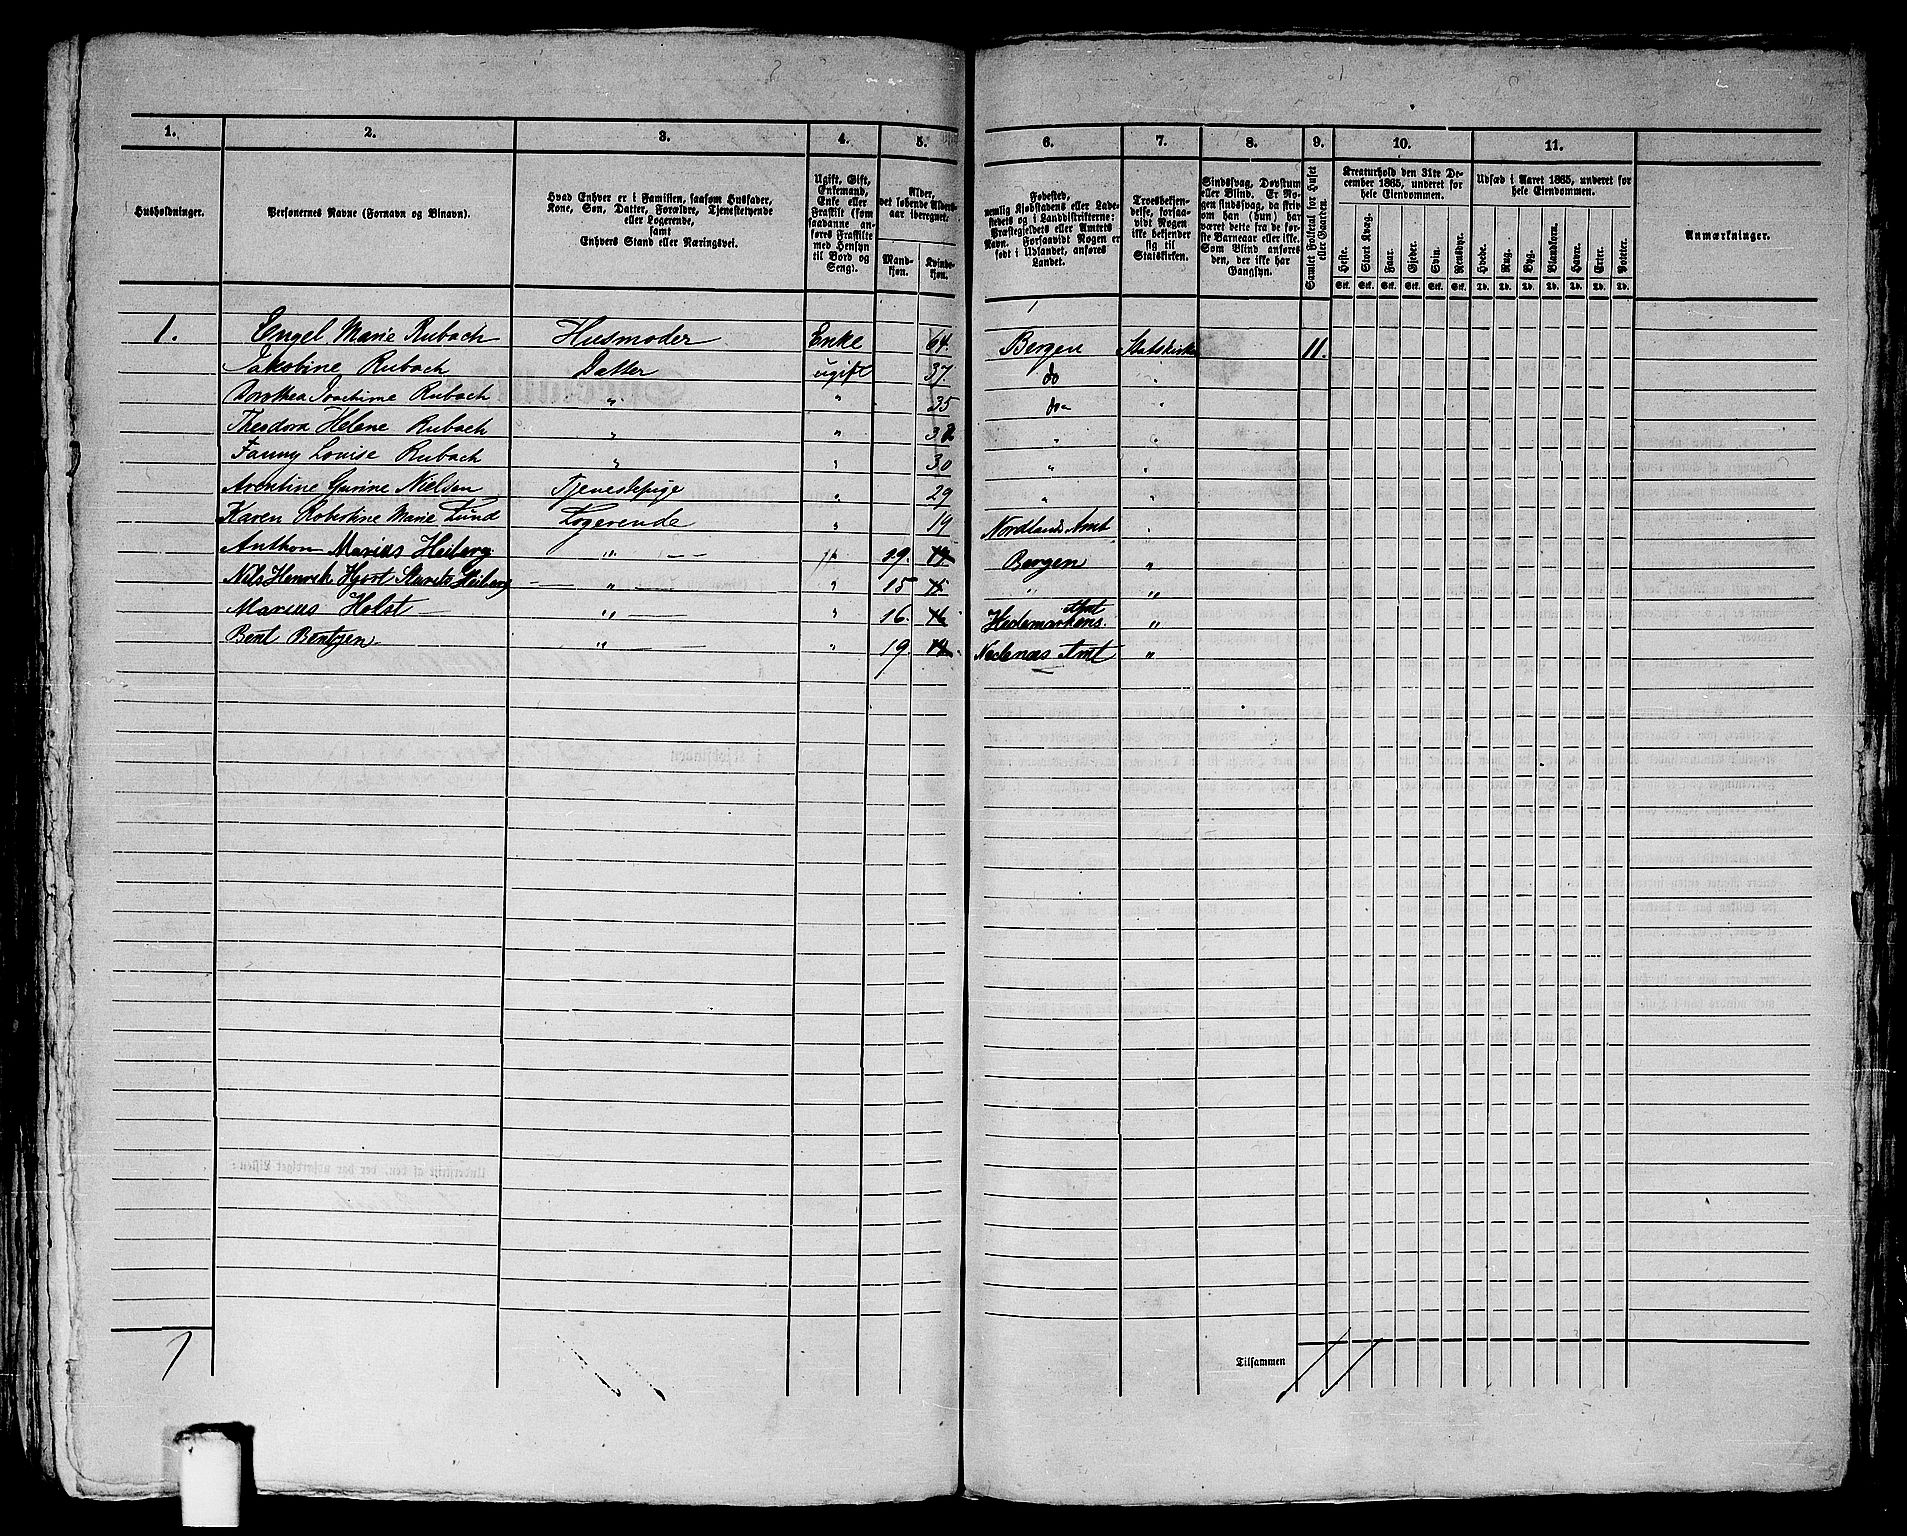 1. 2. 3. 4. 5. 6. 7. 8. 9. 10. 11.
Husholdninger.
Personernes Navne (Fornavn og Binavn).
Hvad Enhver er i Familien, saasom Husfader,
Kone, Søn, Datter, Forældre, Tjenestetyende
eller Logerende,
samt
Enhvers Stand eller Næringsvei.
Ugift, Gift,
Enkemand,
Enke eller
Fraskilt (som
saadanne an-
føres Fraskilte
med Hensyn
til Bord og
Seng).
Alder,
det løbende Alders-
aar iberegnet.
Mand-
kjøn.
Kvinde-
kjøn.
Fødested,
nemlig Kjøbstadens eller Lade-
stedets og i Landdistrikterne:
Præstegjeldets eller Amtets
Navn. Forsaavidt Nogen er
født i Udlandet, anføres
Landet.
Troesbekjen-
delse, forsaa-
vidt Nogen
ikke bekjender
sig til
Statskirken.
Sindssvag, Døvstum
eller Blind. Er No-
gen sindssvag, da skriv
om han (hun) har
været dette fra de før-
ste Barneaar eller ikke.
Som Blind anføres
den, der ikke har
Gangsyn.
Samlet Folketal for Huset
eller Gaarden.
Kreaturhold den 31te De-
cember 1865, underet for
hele Eiendommen.
Heste. Stort Kvæg. Faar. Gjeder. Svin. Rensdyr.
Stk. Stk. Stk. Stk. Stk. Stk.
Udsæd i Aaret 1865, underet for
hele Eiendommen.
Hvede. Rug. Byg. Blandkorn. Havre. Erter. Poteter.
Td. Td. Td. Td. Td. Td. Td.
Anmærkninger.
1. Engel Marie Rubach Husmoder Enke 64. Bergen Statskirke 11.
Jakobine Rubach Datter ugift 37. do "
Dorothea Joachime Rubach " " 35 do "
Theodora Helene Rubach " " 32 " "
Fanny Louise Rubach " " 30 " "
Arentine Gurine Nielsen Tjenestepige " 29 " "
Karen Robertine Marie Lund Logerende " 19 Nordlands Amt "
Anthon Marius Heiberg " — " 19. Bergen "
Nils Henrik Hjort Sturits Heiberg — " — " 15 15 " "
Marius Holst — " — " 16. 16 Hedemarkens Amt "
Bent Bentzen " " 19. Nedenæs Amt "
Tilsammen
1